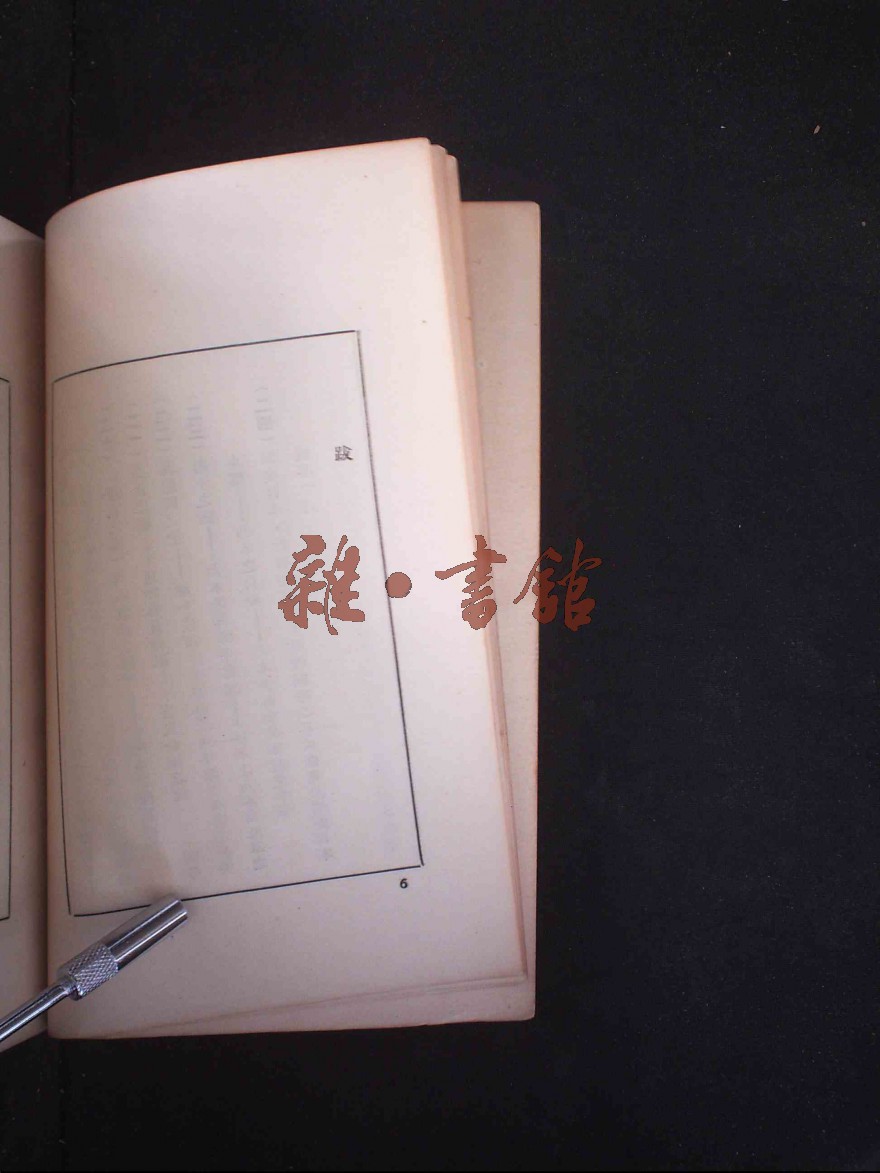 跋
雜·書館
6